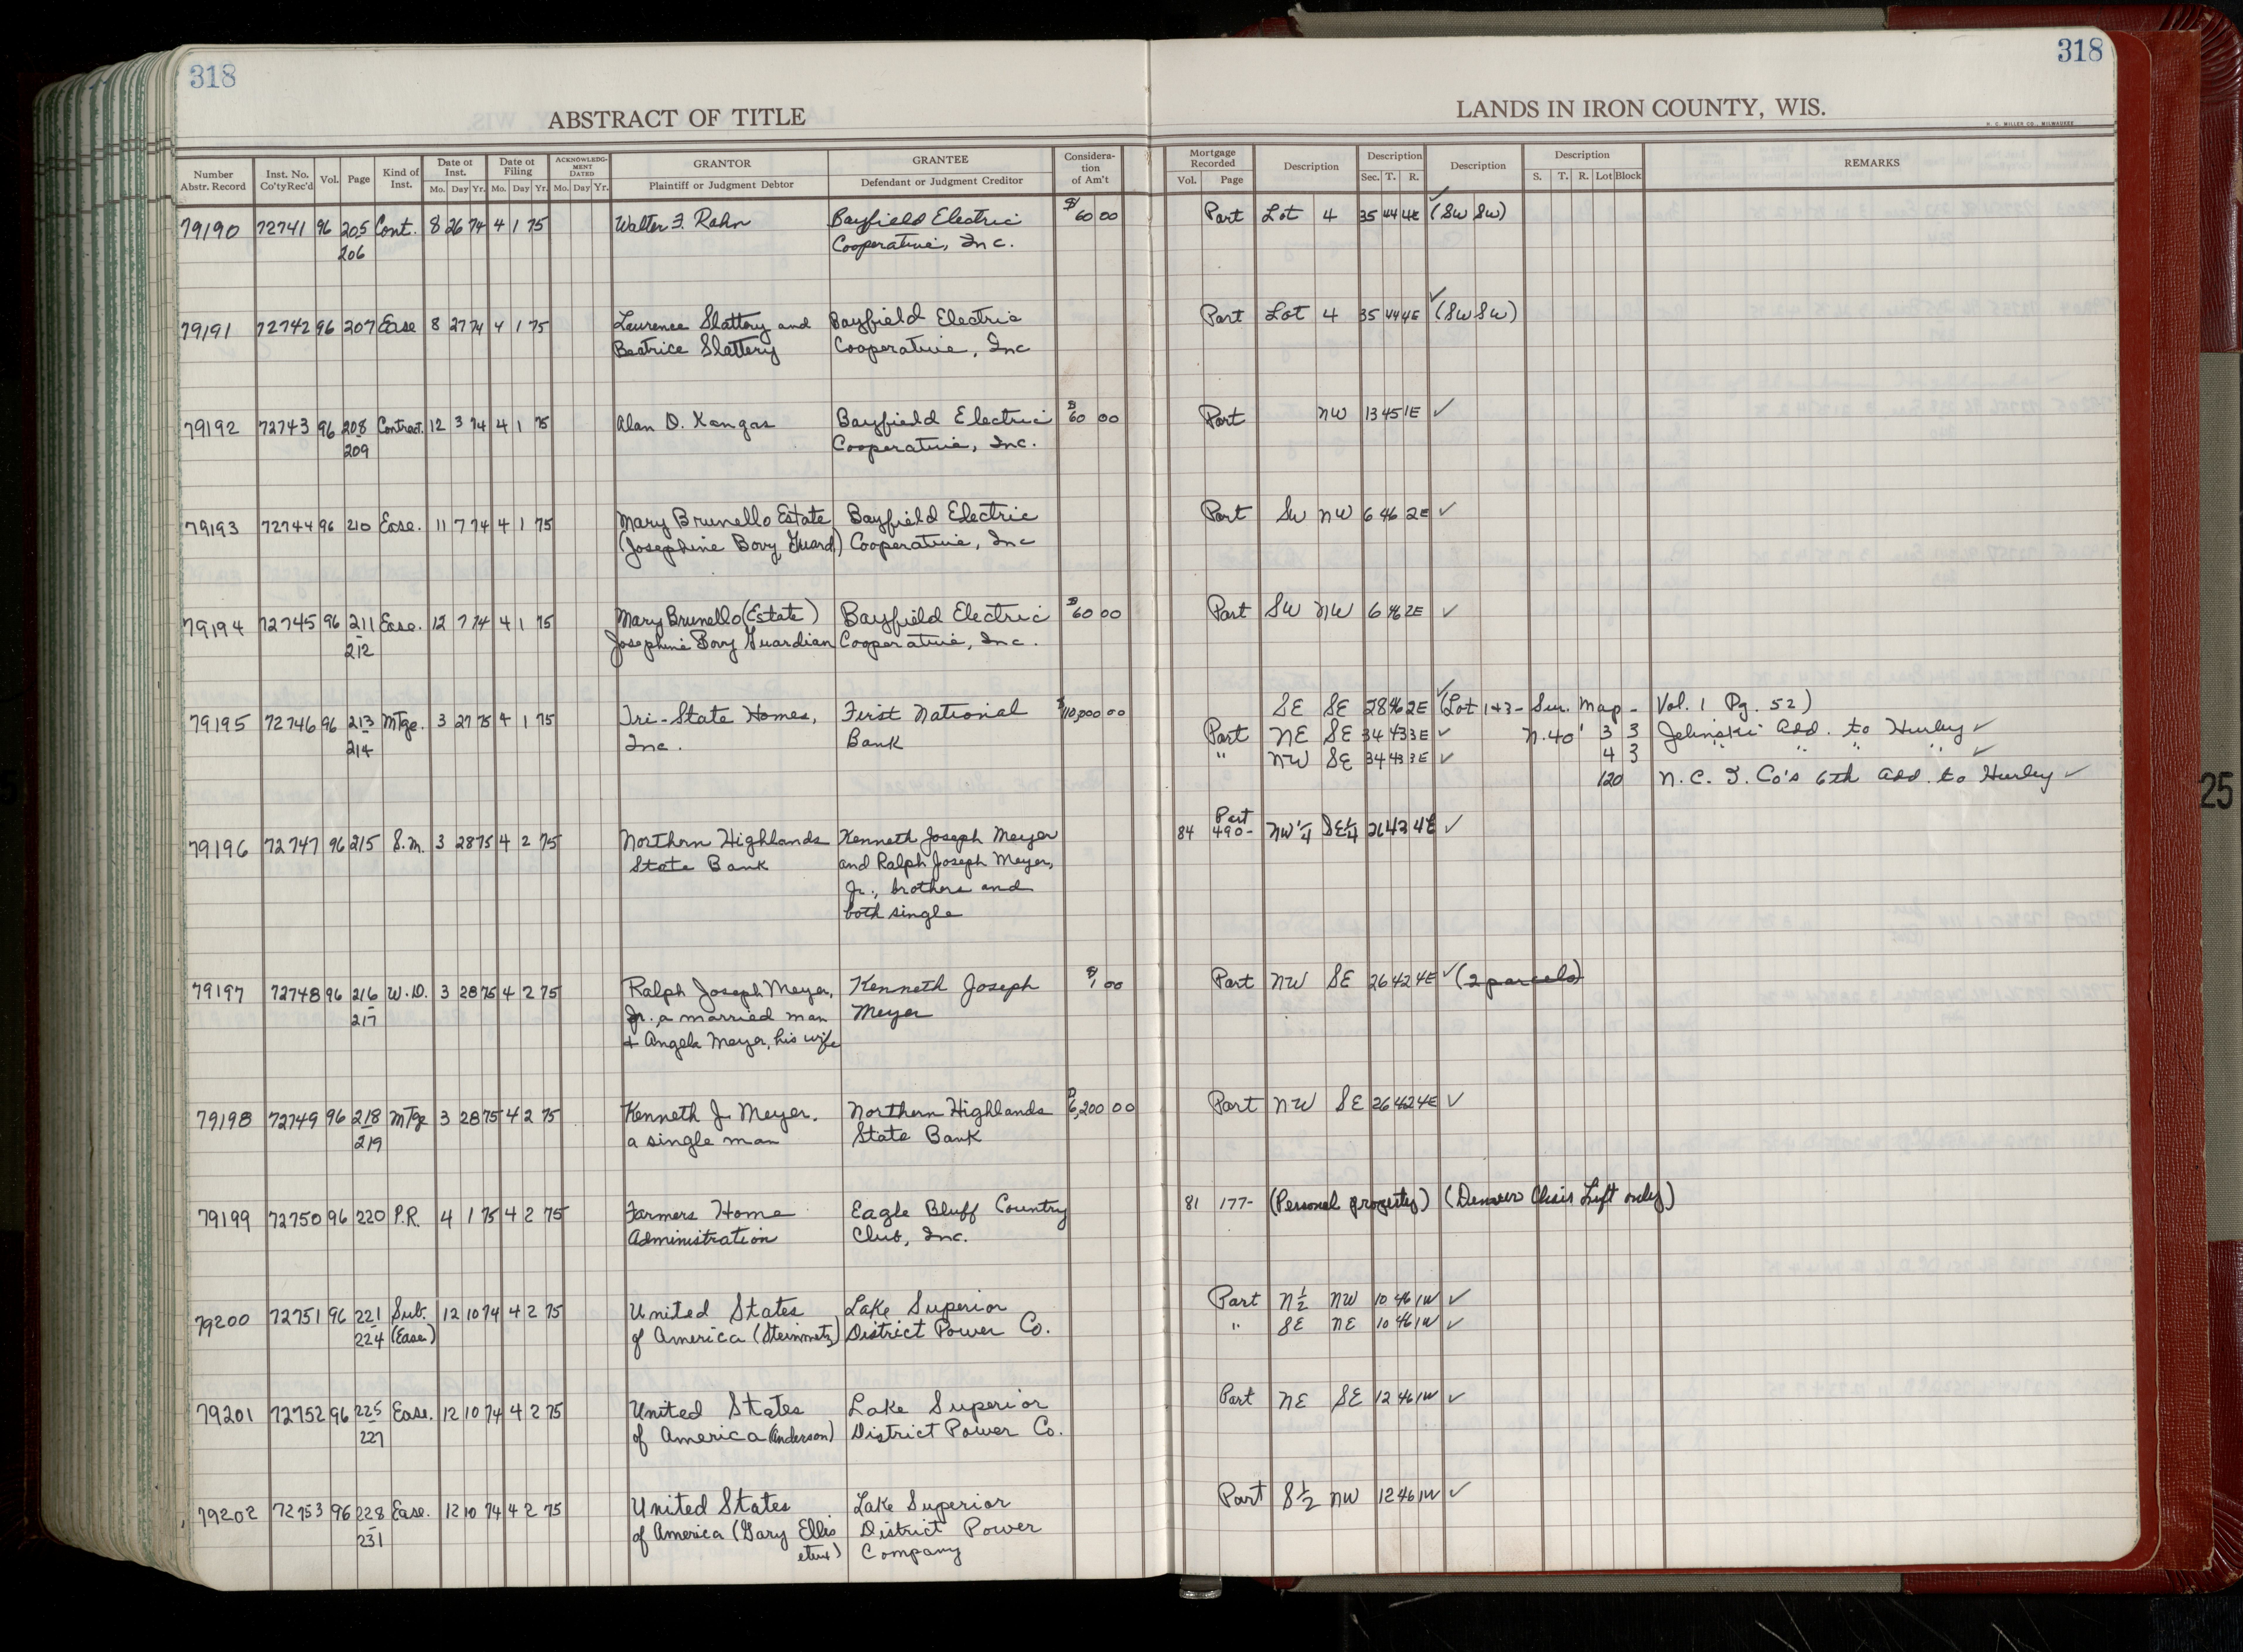 318
318
ABSTRACT OF TITLE
LANDS IN IRON COUNTY, WIS.
H. C. MILLER CO., MILWAUKEE
Number Abstr. Record | Inst. No. Co'ty Rec'd | Vol. | Page | Kind of Inst. | Date of Inst. Mo. Day Yr. | Date of Filing Mo. Day Yr. | ACKNOWLEDGMENT DATED Mo. Day Yr. | GRANTOR Plaintiff or Judgment Debtor | GRANTEE Defendant or Judgment Creditor | Consideration of Am't | Mortgage Recorded Vol. Page | Description | Description Sec. T. R. | Description | Description S. T. R. Lot Block | REMARKS
79190 72741 96 205 Cont. 8 26 74 4 1 75 Walter F. Rahn Bayfield Electric $60 00 Part Lot 4 35 44 4E ✓ (SW SW)
206 Cooperative, Inc.
79191 72742 96 207 Ease 8 27 74 4 1 75 Laurence Slattery and Bayfield Electric Part Lot 4 35 44 4E ✓ (SW SW)
Beatrice Slattery Cooperative, Inc
79192 72743 96 208 Contract. 12 3 74 4 1 75 Alan D. Kangas Bayfield Electric $60 00 Part NW 13 45 1E ✓
209 Cooperative, Inc.
79193 72744 96 210 Ease. 11 7 74 4 1 75 Mary Brunello Estate Bayfield Electric Part SW NW 6 46 2E ✓
(Josephine Bovy Guard) Cooperative, Inc
79194 72745 96 211 Ease. 12 7 74 4 1 75 Mary Brunello (Estate) Bayfield Electric $60 00 Part SW NW 6 46 2E ✓
212 Josephine Bovy Guardian Cooperative, Inc.
79195 72746 96 213 Mtge. 3 27 75 4 1 75 Tri-State Homes, First National $110,000 00 SE SE 28 46 2E ✓ (Lot 1+3 - Sur. Map - Vol. 1 Pg. 52)
214 Inc. Bank Part NE SE 34 43 3E ✓ N. 40' 3 3 Jelinski Add. to Hurley ✓
" NW SE 34 43 3E ✓ 4 3 " " " " ✓
120 N. C. I. Co's 6th Add. to Hurley ✓
79196 72747 96 215 S.M. 3 28 75 4 2 75 Northern Highlands Kenneth Joseph Meyer 84 Part 490- NW 1/4 SE 1/4 26 42 4E ✓
State Bank and Ralph Joseph Meyer,
Jr., brothers and
both single
79197 72748 96 216 W.D. 3 28 75 4 2 75 Ralph Joseph Meyer, Kenneth Joseph $1 00 Part NW SE 26 42 4E ✓ (2 parcels)
217 Jr., a married man Meyer
+ Angela Meyer, his wife
79198 72749 96 218 Mtge 3 28 75 4 2 75 Kenneth J. Meyer. Northern Highlands $6,200 00 Part NW SE 26 42 4E ✓
219 a single man State Bank
79199 72750 96 220 P.R. 4 1 75 4 2 75 Farmers Home Eagle Bluff Country 81 177- (Personal property) (Denver Chair Lift only)
Administration Club, Inc.
79200 72751 96 221 Sub. 12 10 74 4 2 75 United States Lake Superior Part N 1/2 NW 10 46 1W ✓
224 (Ease) of America (Steinmetz) District Power Co. " SE NE 10 46 1W ✓
79201 72752 96 225 Ease. 12 10 74 4 2 75 United States Lake Superior Part NE SE 12 46 1W ✓
227 of America (Anderson) District Power Co.
79202 72753 96 228 Ease. 12 10 74 4 2 75 United States Lake Superior Part S 1/2 NW 12 46 1W ✓
231 of America (Gary Ellis District Power
etux) Company
25